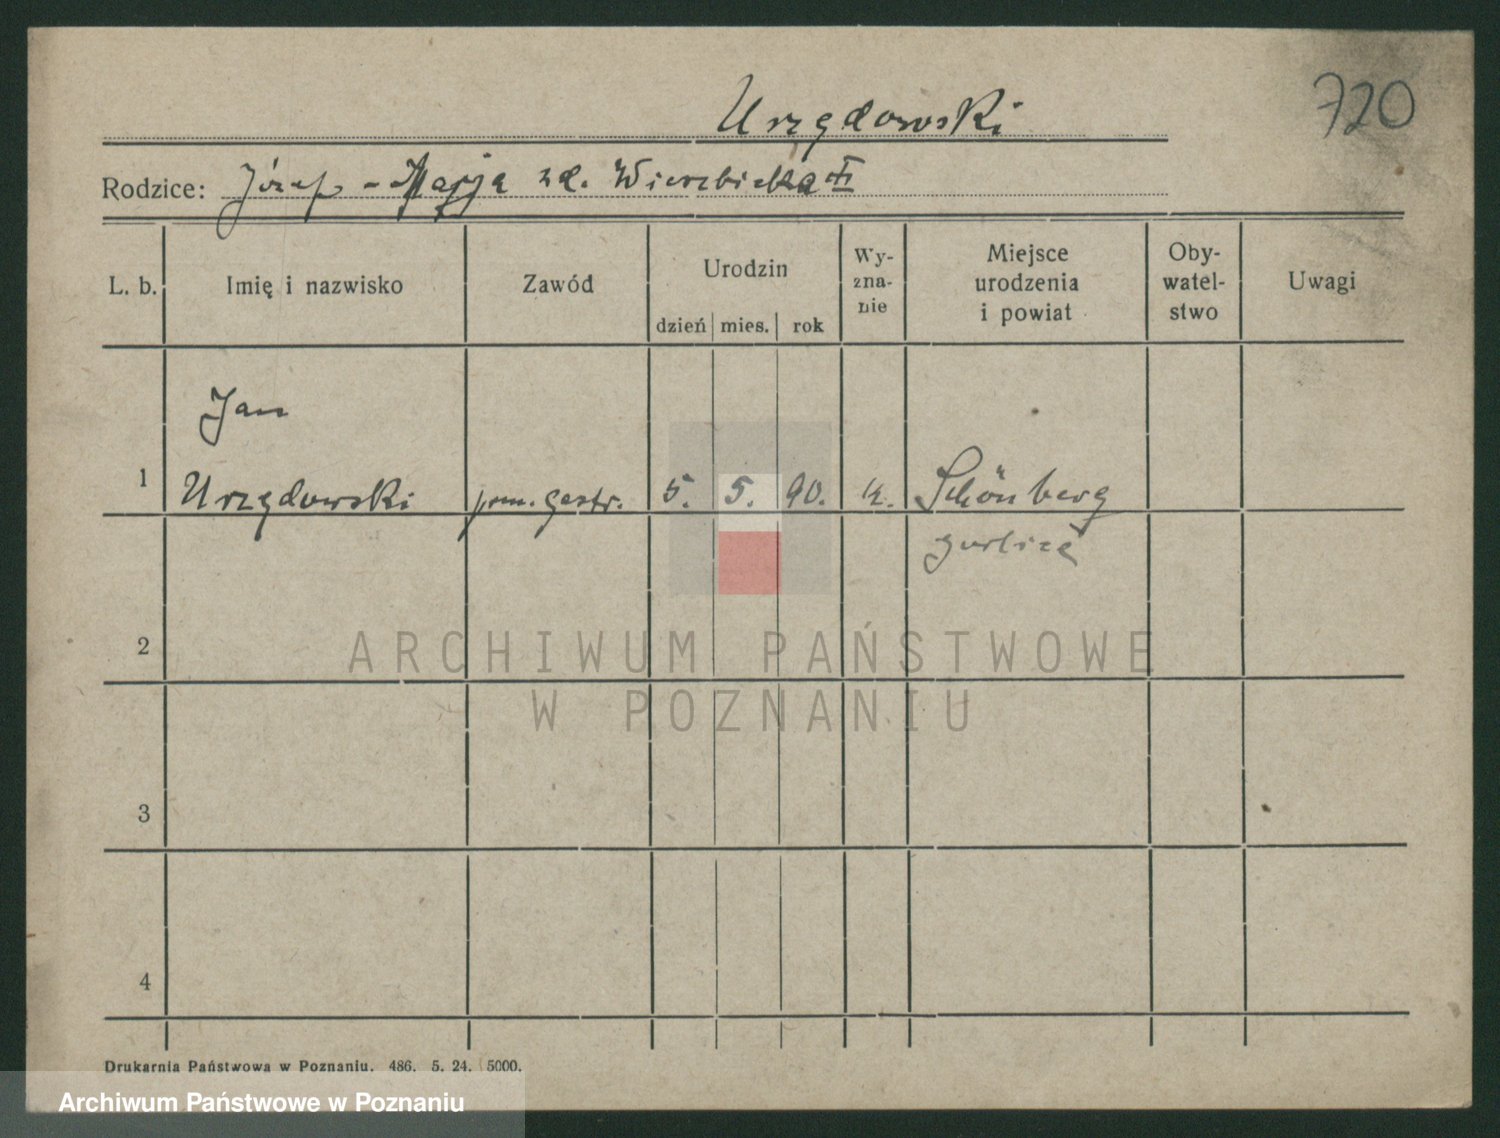 Urzędowski
720
Rodzice: Józef - Marja zd. Wierzbicka
L. b. Imię i nazwisko Zawód Urodzin dzień mies. rok Wy-zna-nie Miejsce urodzenia i powiat Oby-watel-stwo Uwagi
Jan
1 Urzędowski pom. gastr. 5. 5. 90. k. Schönberg
2
3
4
ARCHIWUM PAŃSTWOWE
W POZNANIU
Drukarnia Państwowa w Poznaniu. 486. 5. 24. 5000.
Archiwum Państwowe w Poznaniu